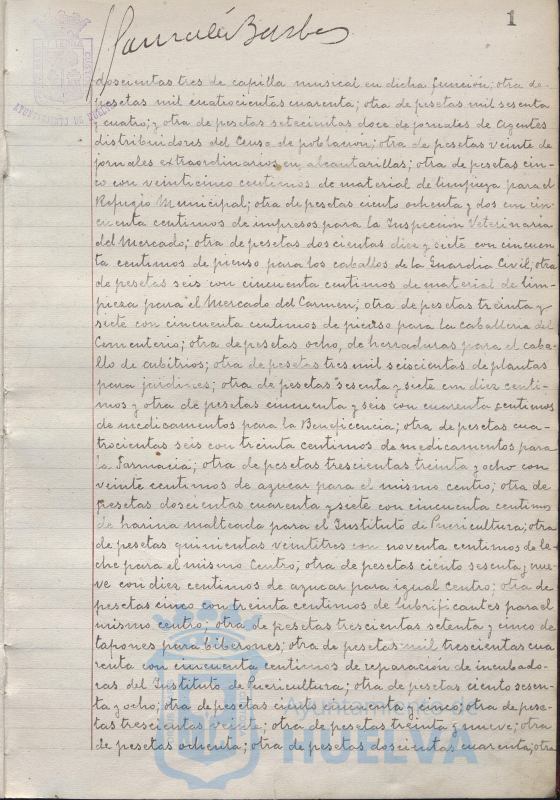 1
González Barba
AYUNTAMIENTO DE HUELVA
doscientas tres de capilla musical en dicha función; otra de
pesetas mil cuatrocientas cuarenta; otra de pesetas mil sesenta
y cuatro; y otra de pesetas setecientas doce de jornales de Agentes
distribuidores del Censo de población; otra de pesetas veinte de
jornales extraordinarios en alcantarillas; otra de pesetas cin-
co con veinticinco centimos de material de limpieza para el
Refugio Municipal; otra de pesetas ciento ochenta y dos con cin-
cuenta centimos de impresos para la Inspección Veterinaria
del Mercado; otra de pesetas doscientas diez y siete con cincuen
ta centimos de pienso para los caballos de la Guardia Civil; otra
de pesetas seis con cincuenta centimos de material de lim-
pieza para el Mercado del Carmen; otra de pesetas treinta y
siete con cincuenta centimos de pienso para la caballeria del
Cementerio; otra de pesetas ocho, de herraduras para el caba-
llo de cubitrios; otra de pesetas tres mil seiscientas de plantas
para jardines; otra de pesetas sesenta y siete con diez centi-
mos y otra de pesetas cincuenta y seis con cuarenta centimos
de medicamentos para la Beneficencia; otra de pesetas cua-
trocientas seis con treinta centimos de medicamentos para
la Farmacia; otra de pesetas trescientas treinta y ocho con
veinte centimos de azucar para el mismo centro; otra de
pesetas doscientas cuarenta y siete con cincuenta centimos
de harina malteada para el Instituto de Puericultura; otra
de pesetas quinientas veintitres con noventa centimos de le-
che para el mismo Centro; otra de pesetas ciento sesenta y nue-
ve con diez centimos de azucar para igual Centro; otra de
pesetas cinco con treinta centimos de lubrificantes para el
mismo centro; otra de pesetas trescientas setenta y cinco de
tapones para biberones; otra de pesetas mil trescientas cua
renta con cincuenta centimos de reparación de incubado-
ras del Instituto de Puericultura; otra de pesetas ciento sesen-
ta y ocho; otra de pesetas ciento cincuenta y cinco; otra de pese-
tas trescientas veinte; otra de pesetas treinta y nueve; otra
de pesetas ochenta; otra de pesetas doscientas cuarenta; otra
Ayuntamiento de
HUELVA